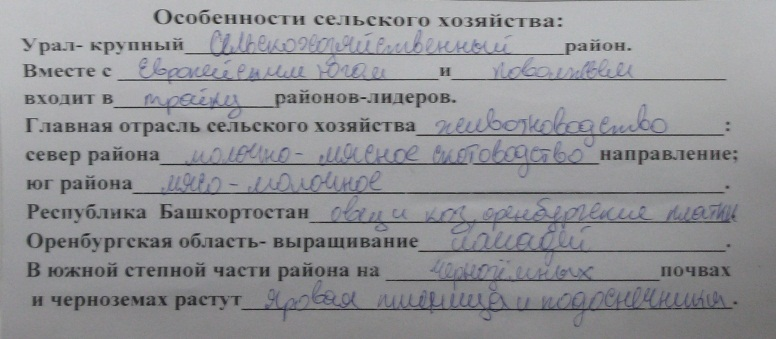 Особенности сельского хозяйства:
Урал- крупный сельскохозяйственный район.
Вместе с Европейским Югом и Поволжьем
входит в тройку районов-лидеров.
Главная отрасль сельского хозяйства животноводство :
север района молочно-мясное скотоводство направление;
юг района мясо-молочное .
Республика Башкортостан овец и коз, оренбургские платки
Оренбургская область- выращивание лошадей .
В южной степной части района на чернозёмных почвах
и черноземах растут яровая пшеница и подсолнечник .